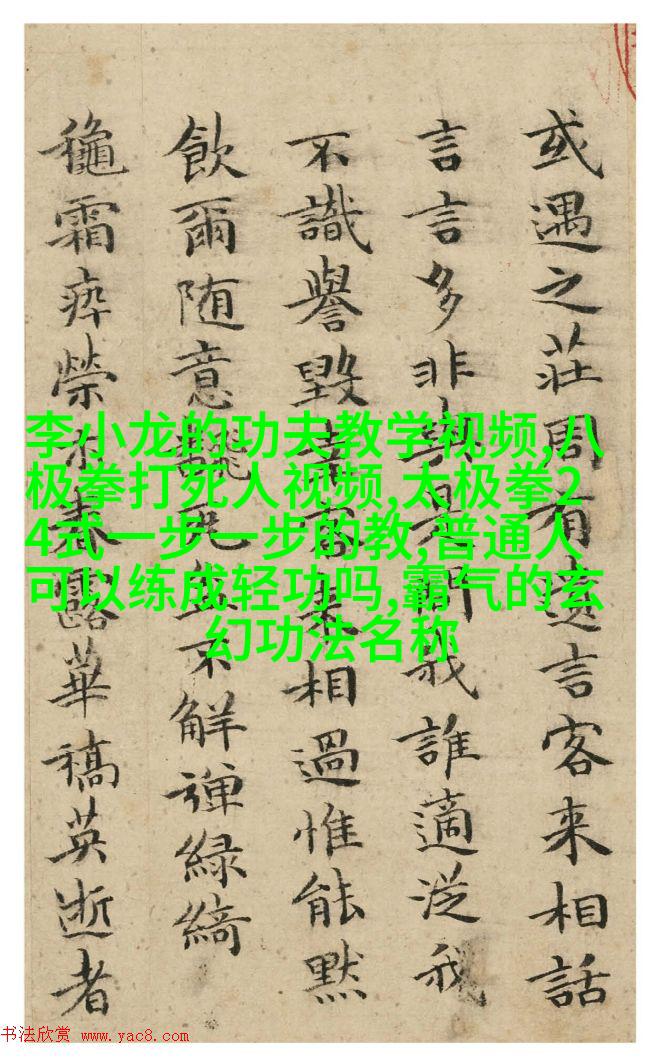 或遇之莊周有言客来相話
言言多非我誰適従我
不識譽毀客来相過惟能默
飲爾随意不解彈緑綺
穐霜瘁榮木春露華槁英逝者
李小龙的功夫教学视频,八
极拳打死人视频,太极拳2
4式一步一步的教,普通人
可以练成轻功吗,霸气的玄
幻功法名称
书法欣赏 www.yac8.com